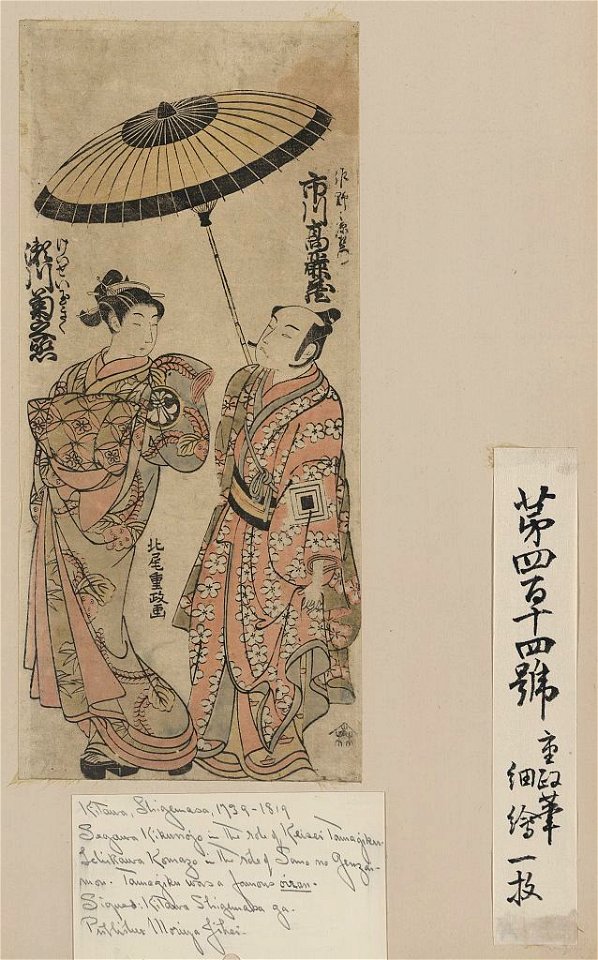 佐野之源左衛門
市川高麗蔵
けいせい玉きく
瀬川菊之丞
北尾重政画
Kitawo, Shigemasa, 1739-1819
Segawa Kikunojo - in the role of Keisei Tamagiku.
Ichikawa Komazo - in the role of Sano no Genzai-
mon. Tamagiku was a famous oiran.
Signed: Kitawo Shigemasa ga.
Publisher Moriya Jihei.
第四百十四號
重政筆
細繪一枚